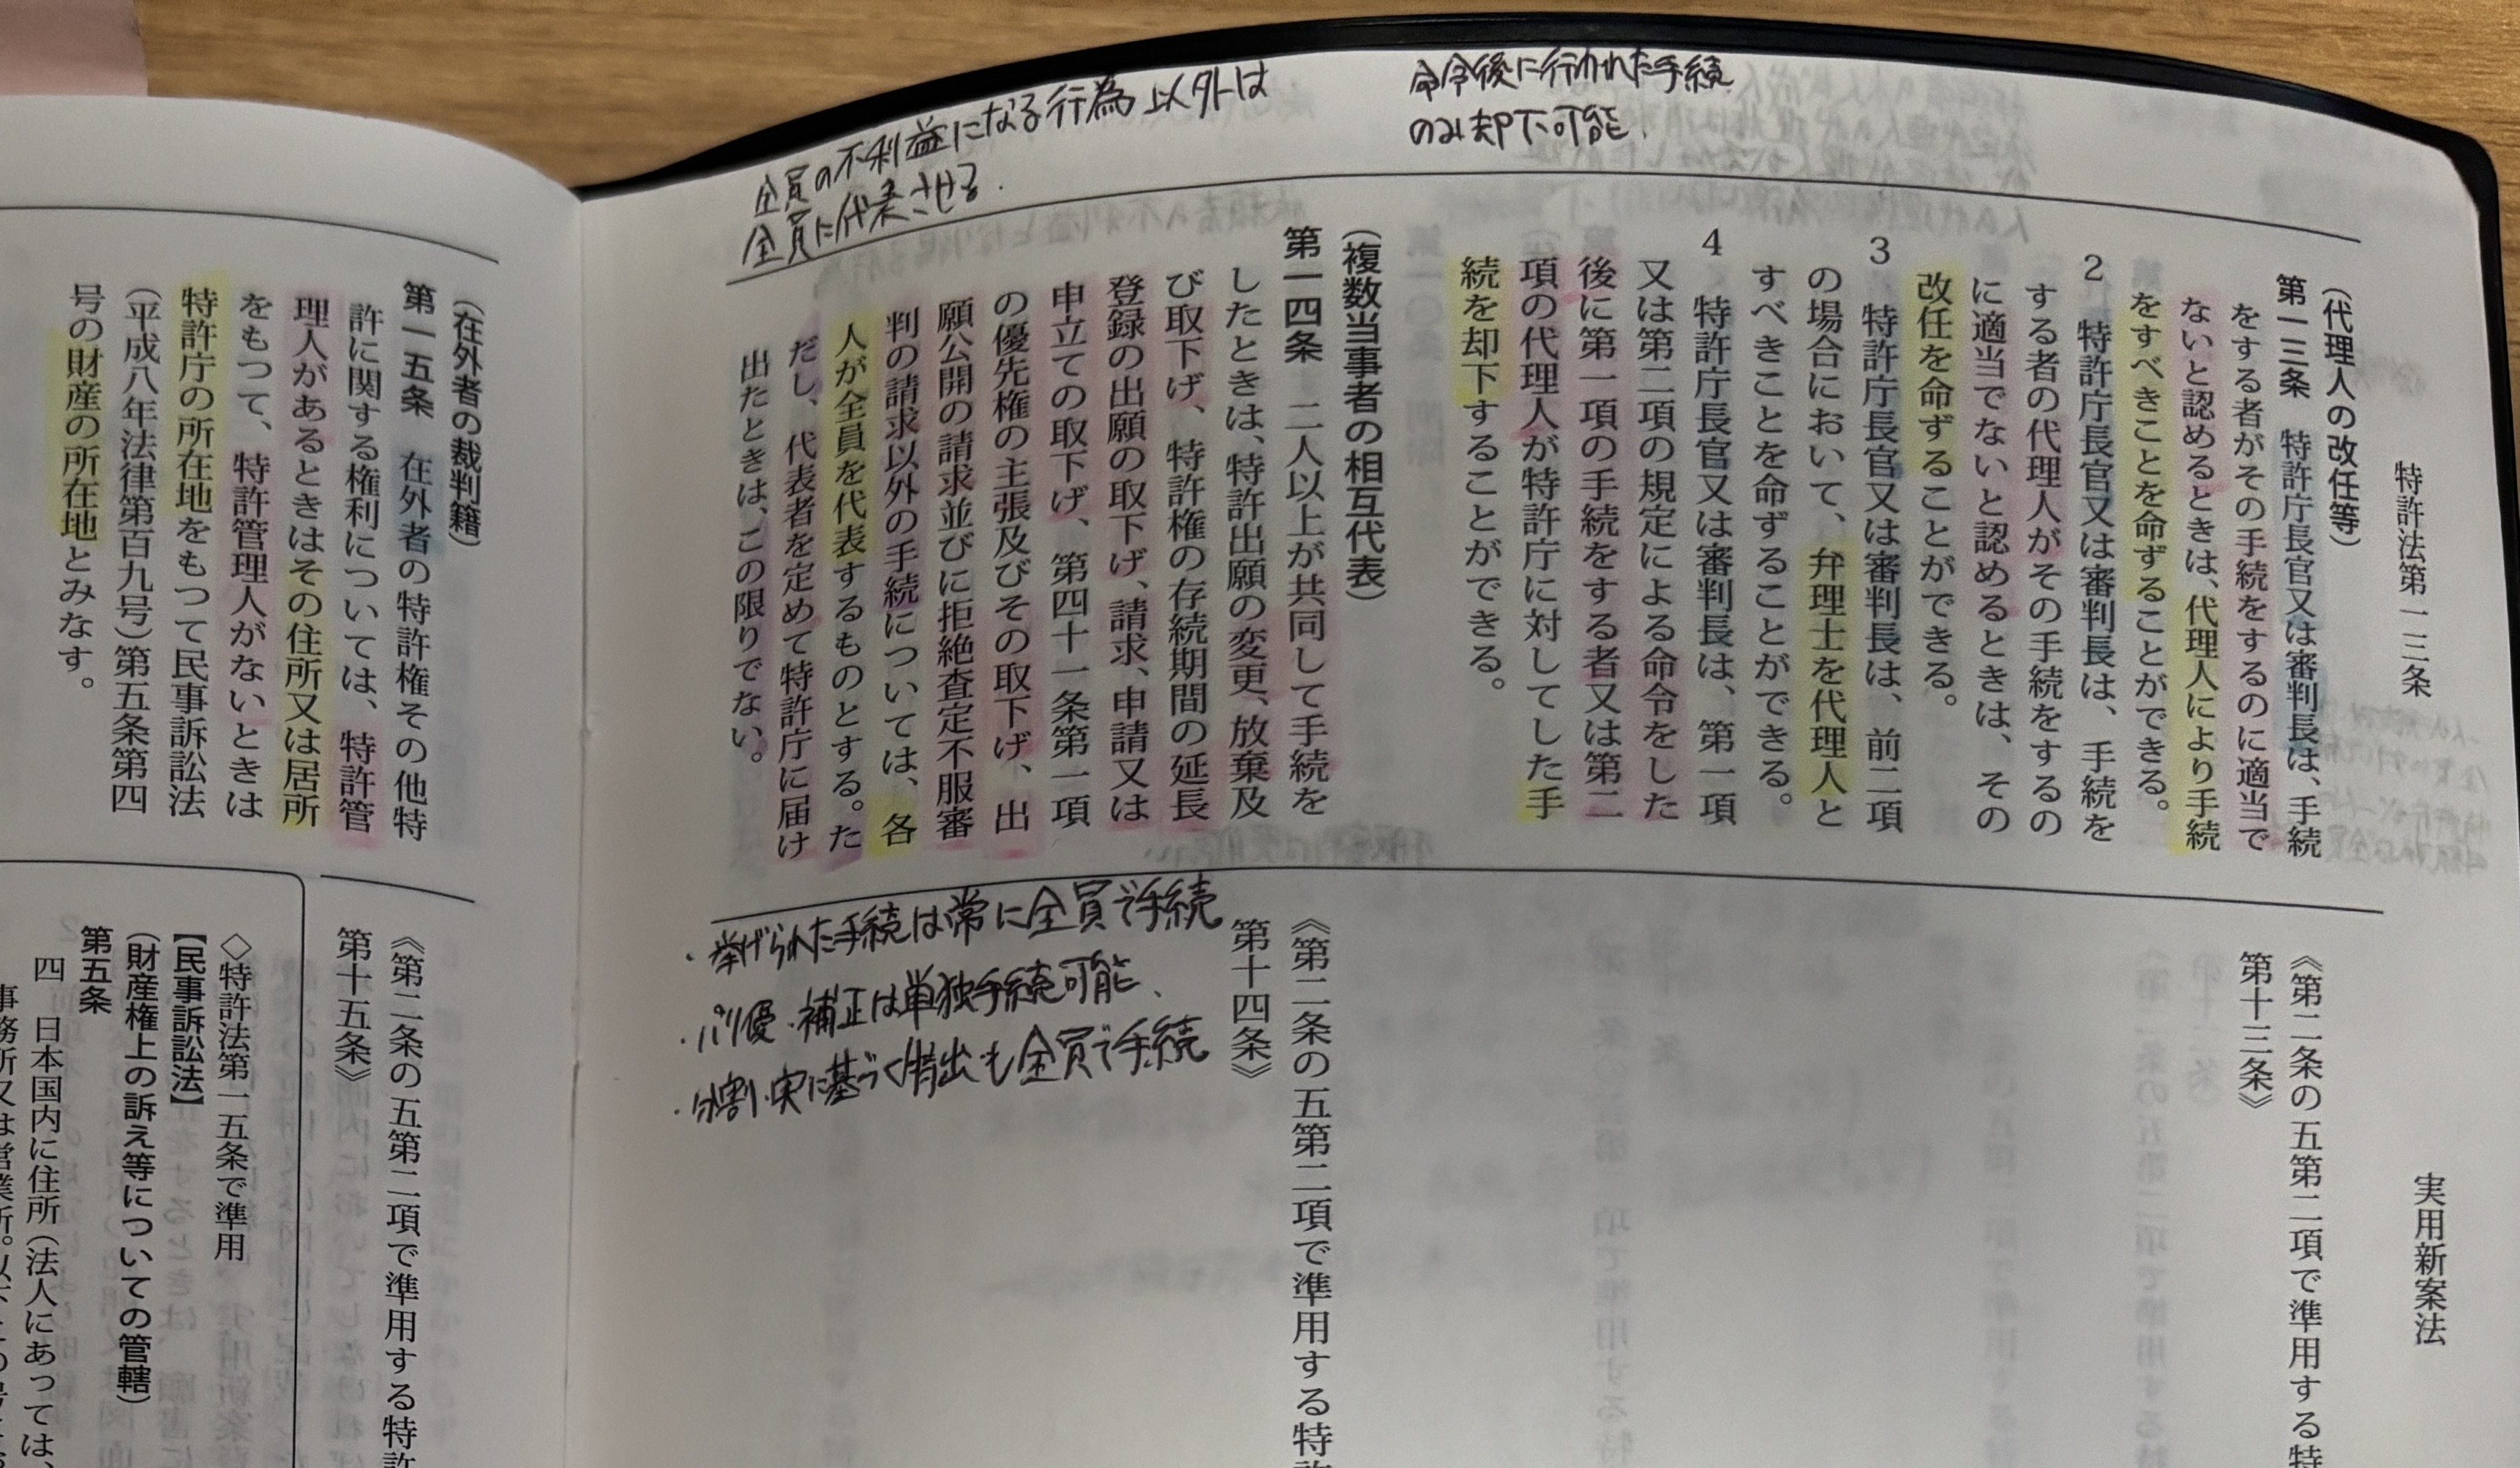 命令後に行われた手続
のみ却下可能.
全員の不利益になる行為以外は
全員に代表させる.
特許法第一三条
実用新案法
（代理人の改任等）
第一三条　特許庁長官又は審判長は、手続
をする者がその手続をするのに適当で
ないと認めるときは、代理人により手続
をすべきことを命ずることができる。
2　特許庁長官又は審判長は、手続を
する者の代理人がその手続をするの
に適当でないと認めるときは、その
改任を命ずることができる。
3　特許庁長官又は審判長は、前二項
の場合において、弁理士を代理人と
すべきことを命ずることができる。
4　特許庁長官又は審判長は、第一項
又は第二項の規定による命令をした
後に第一項の手続をする者又は第二
項の代理人が特許庁に対してした手
続を却下することができる。
（複数当事者の相互代表）
第一四条　二人以上が共同して手続を
したときは、特許出願の変更、放棄及
び取下げ、特許権の存続期間の延長
登録の出願の取下げ、請求、申請又は
申立ての取下げ、第四十一条第一項
の優先権の主張及びその取下げ、出
願公開の請求並びに拒絶査定不服審
判の請求以外の手続については、各
人が全員を代表するものとする。た
だし、代表者を定めて特許庁に届け
出たときは、この限りでない。
《第二条の五第二項で準用する特
第十三条》
《第二条の五第二項で準用する特許
第十四条》
・挙げられた手続は常に全員で手続
・パリ優・補正は単独手続可能、
・分割・実に基づく特出も全員で手続
（在外者の裁判籍）
第一五条　在外者の特許権その他特
許に関する権利については、特許管
理人があるときはその住所又は居所
をもつて、特許管理人がないときは
特許庁の所在地をもつて民事訴訟法
（平成八年法律第百九号）第五条第四
号の財産の所在地とみなす。
《第二条の五第二項で準用する特許
第十五条》
◇特許法第一五条で準用
【民事訴訟法】
（財産権上の訴え等についての管轄）
第五条
四　日本国内に住所（法人にあっては、